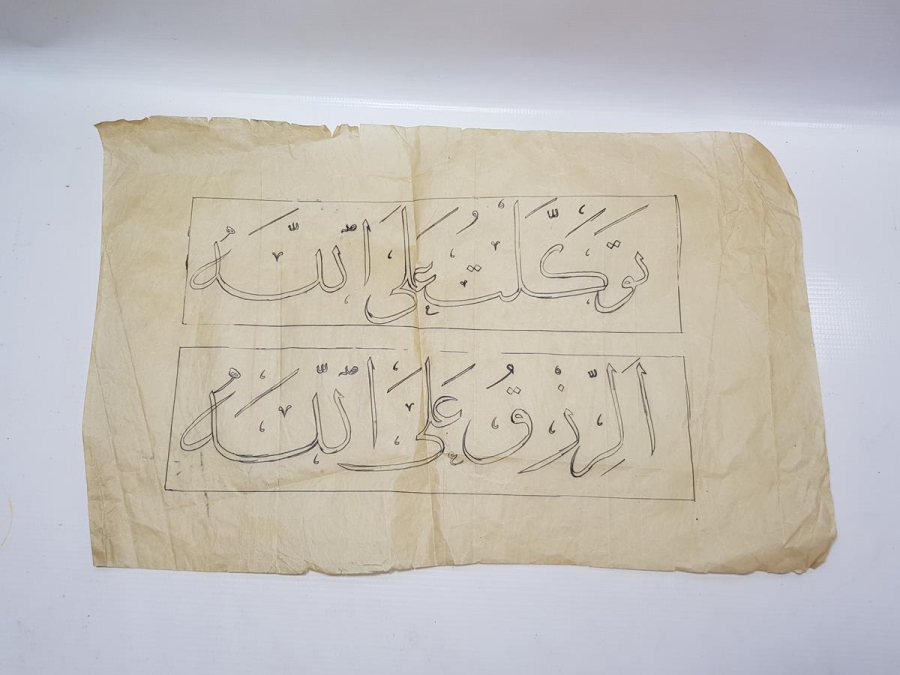 تَوَكَّلْتُ عَلَى اللّٰه
الَرِّزْقُ عَلَى اللّٰه